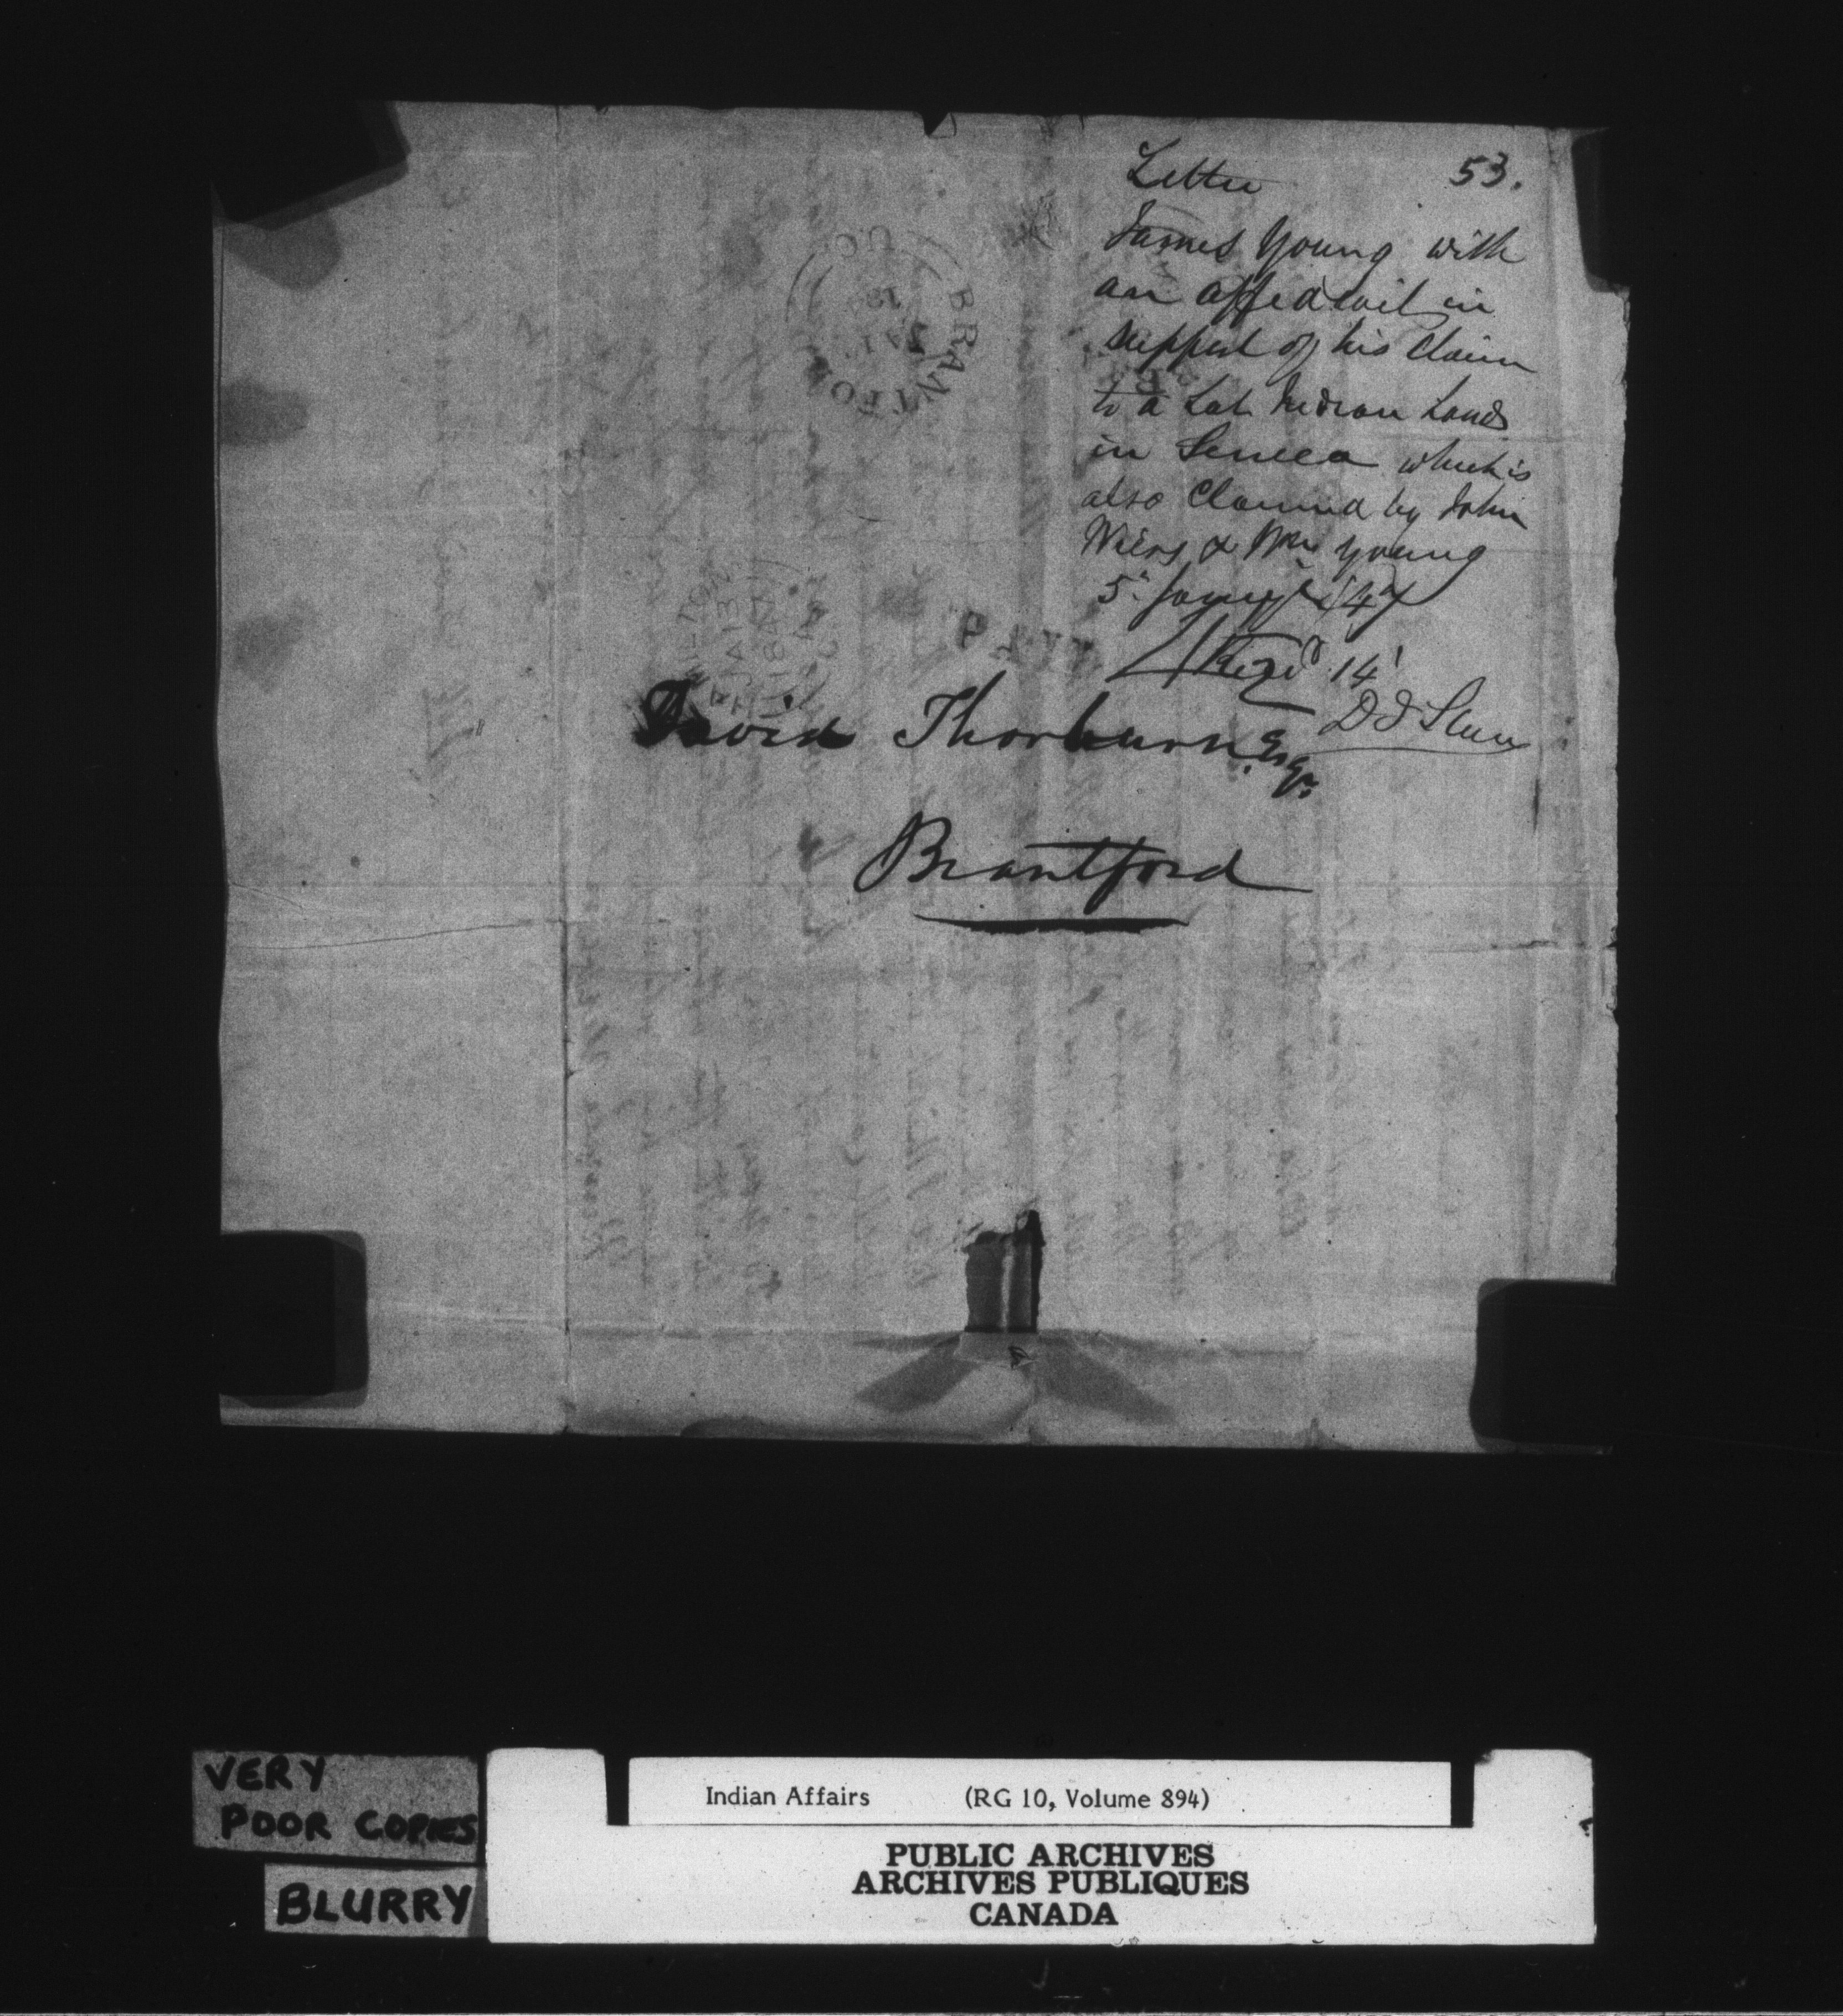 Letter 53.
James Young with
an affedavit in
support of his Claim
to a Lot Indian Lands
in Seneca which is
also Claimed by John
Weirs & Wm Young
5th Jany 1847
Recd 14
David Thorburn Esqr.
Brantford
BRANTFO
U.C.
PAID
HAMILTON
JA 13
1847
VERY
POOR COPIES
BLURRY
Indian Affairs (RG 10, Volume 894)
PUBLIC ARCHIVES
ARCHIVES PUBLIQUES
CANADA